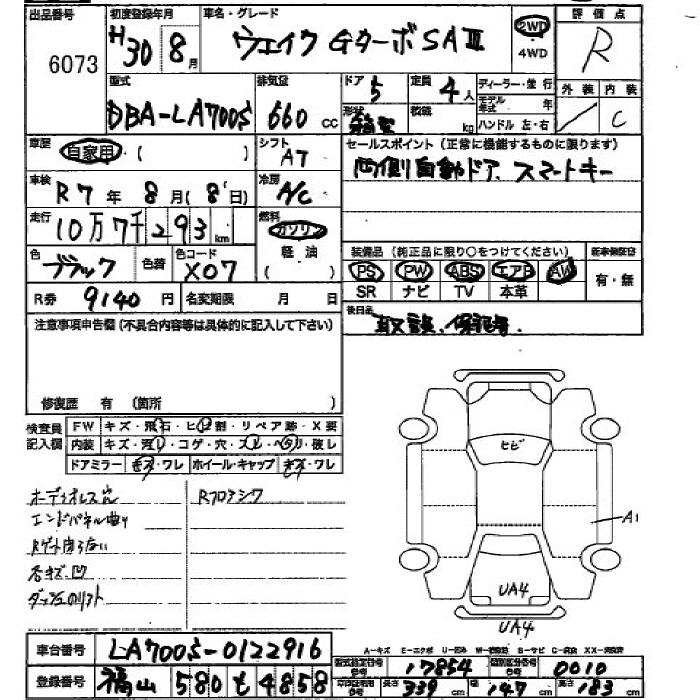 出品番号 初度登録年月 車名・グレード 評価点
6073 H30 8月 ウェイク GターボSAⅢ 2WD 4WD R
型式 排気量 ドア 定員 ディーラー・並行 外装 内装
DBA-LA700S 660cc 5 4人 モデル年式 年 C
形状 積載 kg ハンドル 左・右
車歴 シフト セールスポイント(正常に機能するものに限ります)
自家用・( ) AT 両側自動ドア、スマートキー
車検 冷房
R7年 8月(8日) A/C
走行 燃料
10万7千293km ガソリン
軽油
( )
色 色替 色コード 装備品(純正品に限り○をつけてください) 新車保証書
ブラック X07 PS PW ABS エアB AW 有・無
SR ナビ TV 本革
R券 9140円 名変期限 月 日 後日品 取説、保証書、
注意事項申告欄(不具合内容等は具体的に記入して下さい)
修復歴 有(箇所
検査員記入欄 FW キズ・飛石・ヒビ割・リペア跡・X要
内装 キズ・汚レ・コゲ・穴・スレ・ヘタリ・破レ
ドアミラー キズ・ワレ ホイール・キャップ キズ・ワレ
オーディオレス穴 Rフロアシワ
エンドパネル曲り
Rゲート閉らない
凹
ダッシュのリフト
ヒビ
A1
UA4
UA4
車台番号 LA700S-0122916
A-キズ E-エクボ U-凹ミ
登録番号 福山 580 も 4858
型式指定番号 17854 類別区分番号 0010
長さ 339cm 幅 147cm 高さ 183cm